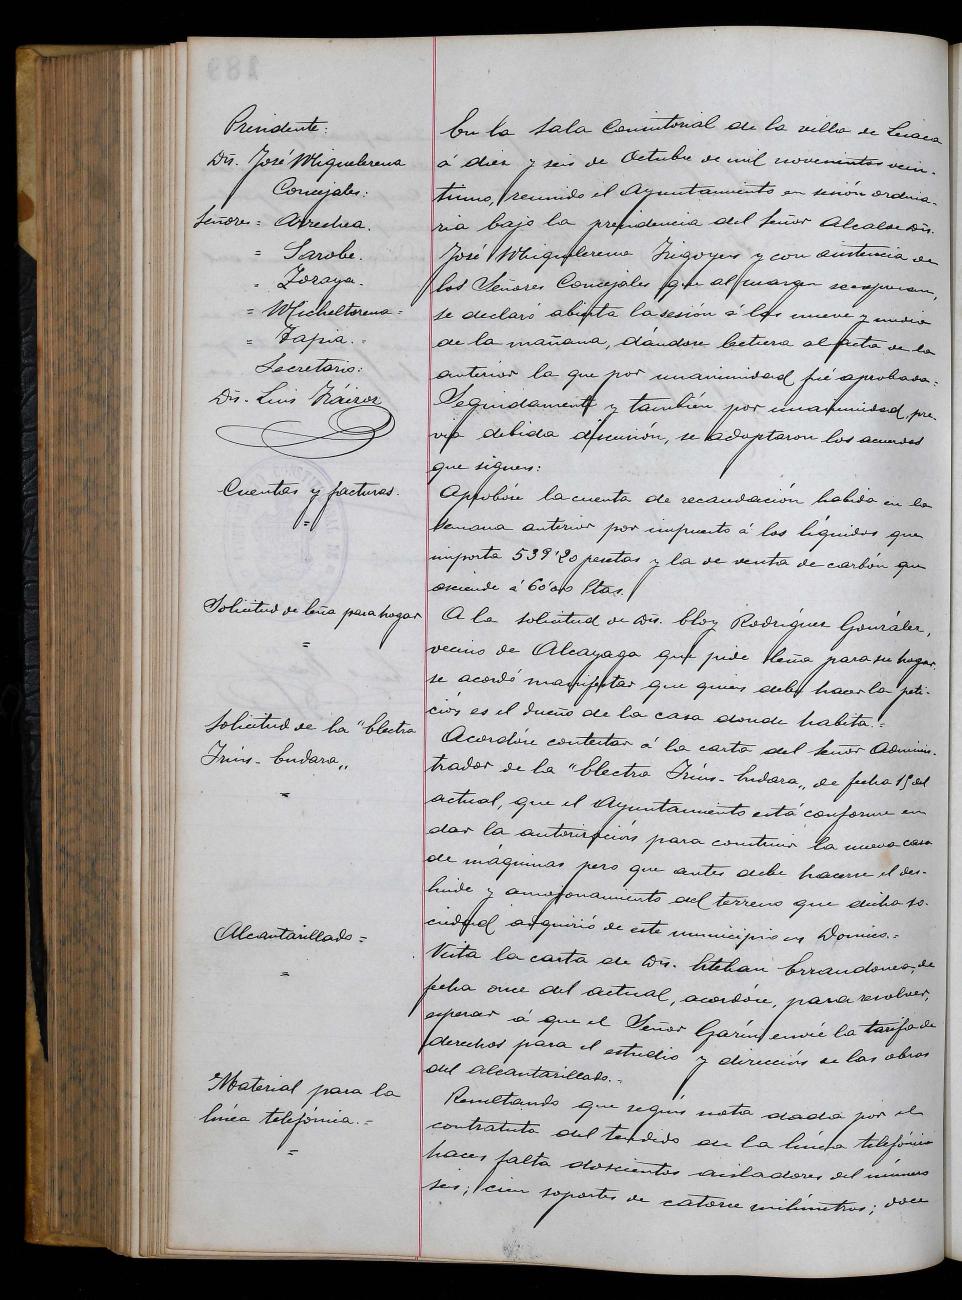 Presidente:
Dn. José Miquelerena
Concejales:
Señores = Arrechea.
= Sarobe.
= Zoraya.
= Micheltorena =
= Tapia. =
Secretario:
Dn. Luis
En la Sala Consistorial de la villa de Lesaca
á diez y seis de Octubre de mil novecientos vein-
tiuno, reunido el Ayuntamiento en sesión ordina-
ria bajo la presidencia del Señor Alcalde Dn.
José Miquelerena Irigoyen y con asistencia de
los Señores Concejales que al margen se expresan,
se declaró abierta la sesión á las nueve y media
de la mañana, dándose lectura al acta de la
anterior la que por unanimidad fué aprobada =
Seguidamente y también por unanimidad, pre-
via debida discusión, se adoptaron los acuerdos
que siguen:
Cuentas y facturas.
=
Aprobóse la cuenta de recaudación habida en la
semana anterior por impuesto á los líquidos que
importa 539'20 pesetas y la de venta de carbón que
asciende á 60'00 Ptas.
Solicitud de leña para hogar
=
A la solicitud de Dn. Eloy Rodríguez González,
vecino de Alcayaga que pide leña para su hogar,
se acordó manifestar que quien debe hacer la peti-
ción es el dueño de la casa donde habita. =
Solicitud de la "Electra
Irún-Endara„
=
Acordóse contestar á la carta del Señor Adminis-
trador de la "Electra Irún-Endara„ de fecha 15 del
actual, que el Ayuntamiento está conforme en
dar la autorización para construir la nueva casa
de máquinas pero que antes debe hacerse el des-
linde y amojonamiento del terreno que dicha so-
ciedad adquirió de este municipio en Domico. =
Alcantarillado =
=
Vista la carta de Dn. Esteban Errandonea, de
fecha once del actual, acordóse, para resolver,
esperar á que el Señor Garín envíe la tarifa de
derechos para el estudio y dirección de las obras
del alcantarillado. =
Material para la
línea telefónica. =
=
Resultando que según nota dada por el
contratista del tendido de la línea telefónica
hacen falta doscientos aisladores del número
seis; cien soportes de catorce milímetros; doce